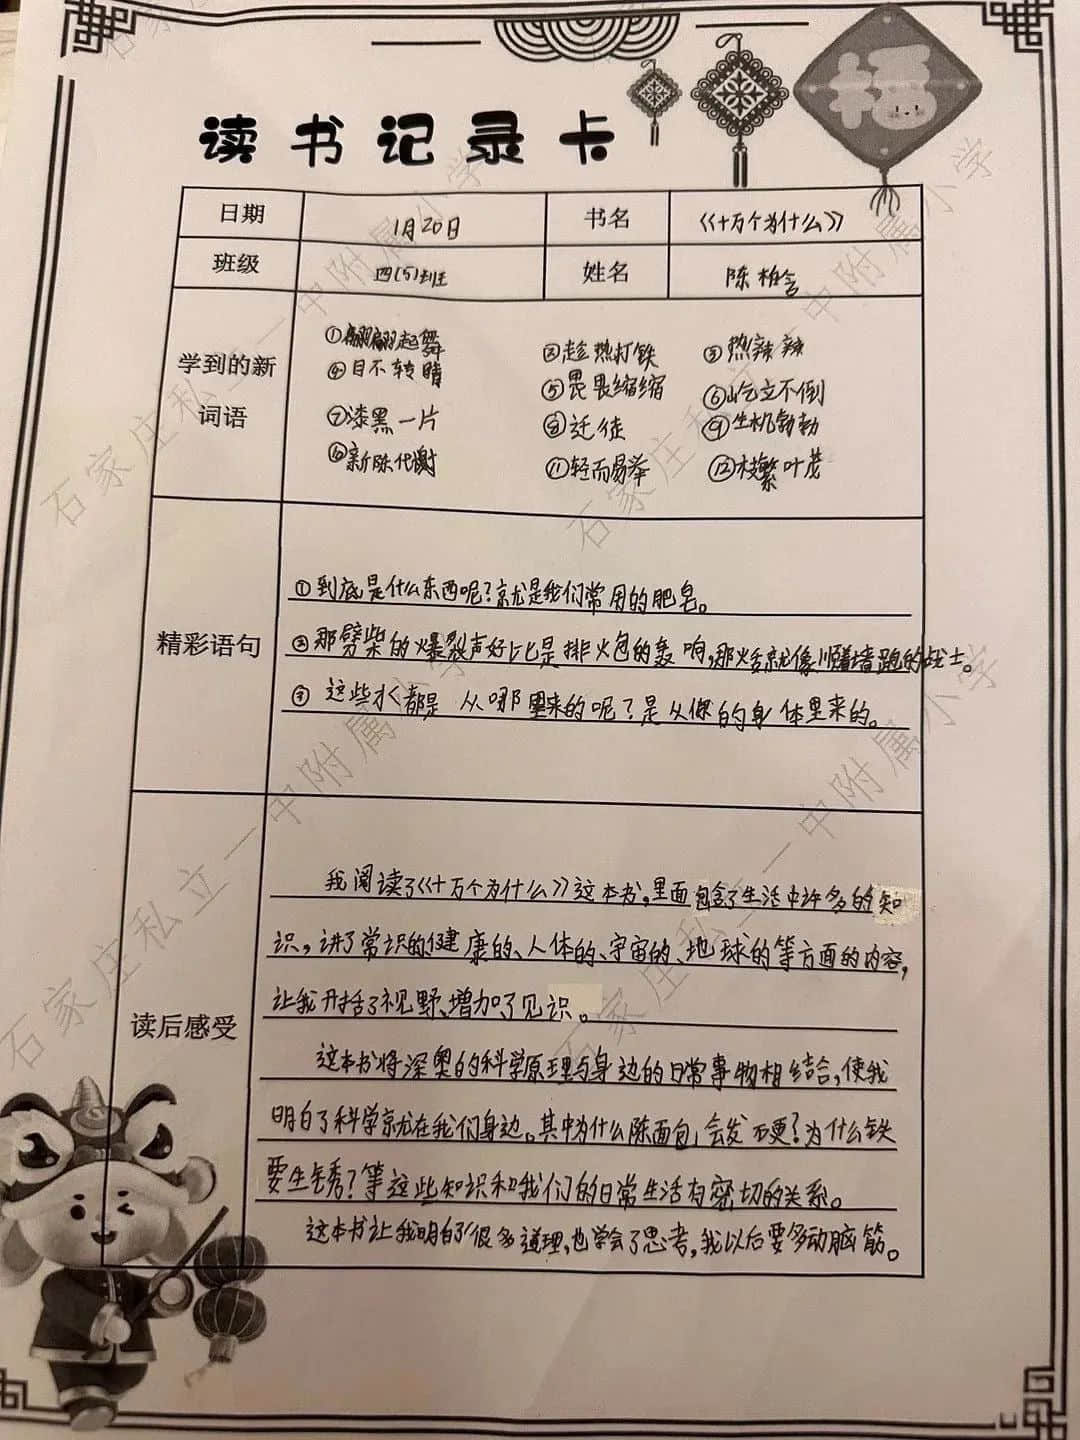 福
读书记录卡
日期 1月20日 书名 《十万个为什么》
班级 四(5)班 姓名 陈柏含
学到的新词语
①翩翩起舞 ②趁热打铁 ③热辣辣
④目不转睛 ⑤畏畏缩缩 ⑥屹立不倒
⑦漆黑一片 ⑧迁徙 ⑨生机勃勃
⑩新陈代谢 ⑪轻而易举 ⑫枝繁叶茂
精彩语句
①到底是什么东西呢?就是我们常用的肥皂。
②那劈柴的爆裂声好比是排火包的轰响,那火焰就像顺着墙跑的战士。
③这些水都是从哪里来的呢?是从你的身体里来的。
读后感受
我阅读了《十万个为什么》这本书,里面包含了生活中许多的知
识,讲了常识的健康的、人体的、宇宙的、地球的等方面的内容,
让我开括了视野、增加了见识。
这本书将深奥的科学原理与身边的日常事物相结合,使我
明白了科学就在我们身边。其中为什么陈面包会发硬?为什么铁
要生锈?等这些知识和我们的日常生活有密切的关系。
这本书让我明白了很多道理,也学会了思考,我以后要多动脑筋。
石家庄私立一中附属小学
石家庄私立一中附属小学
石家庄私立一中附属小学
石家庄私立一中附属小学